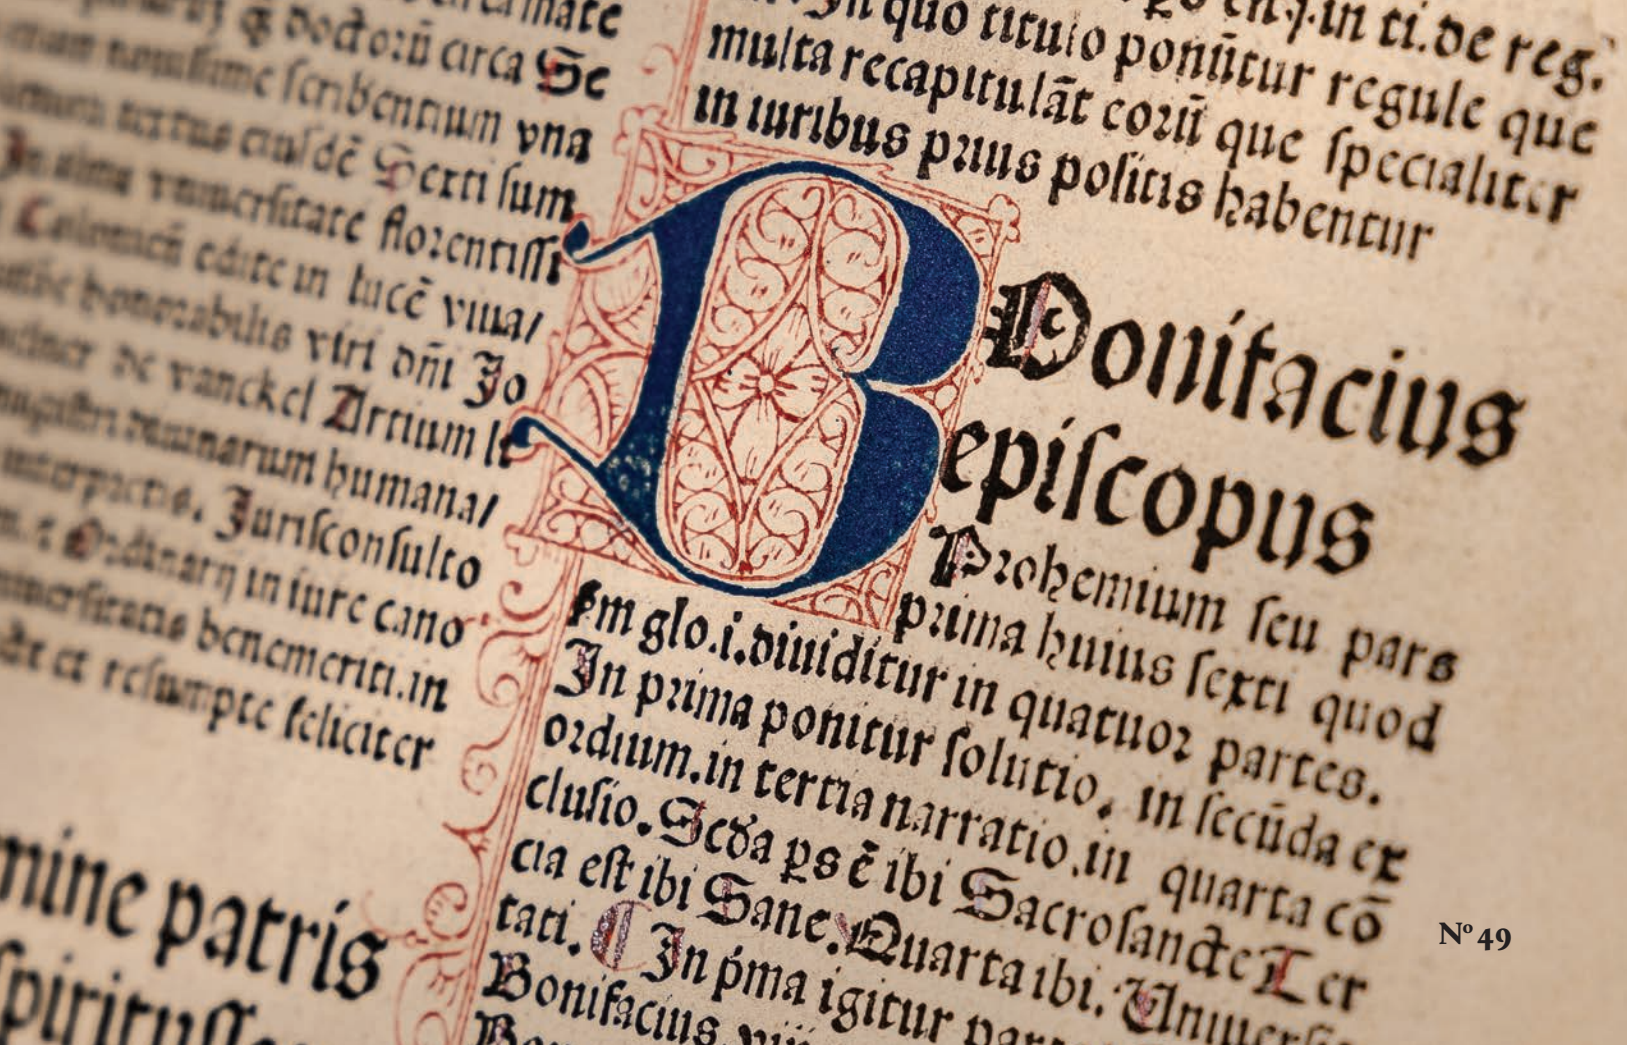 mate
q̃ꝫ doctorũ circa Se
nouissime scribentium vna
textus eiusdẽ Sexti sum
In alma vniuersitate florentissi
Coloniẽñ edite in lucẽ viua/
honorabilis viri dñi Jo
de vanckel Artium
magistri diuinarum humana/
interpretis. Jurisconsulto
Ordinarij in iure cano
vniuersitatis benemeriti.in
et resumpte feliciter
mine patris
spiritusse
.in ti.de reg.
In quo titulo ponũtur regule que
multa recapitulãt eorũ que specialiter
in iuribus prius positis habentur
BBonifacius
episcopus
Prohemium seu pars
prima huius sexti quod
ẜm glo.i.diuiditur in quatuor partes.
In prima ponitur solutio. in secũda ex
ordium.in tertia narratio.in quarta cõ
clusio.Scďa ꝑs ẽ ibi Sacrosancte Ter
cia est ibi Sane.Quarta ibi. Uniuersi
tati. ¶ In p̃ma igitur par
Bonifacius viij
Bon
Nº 49